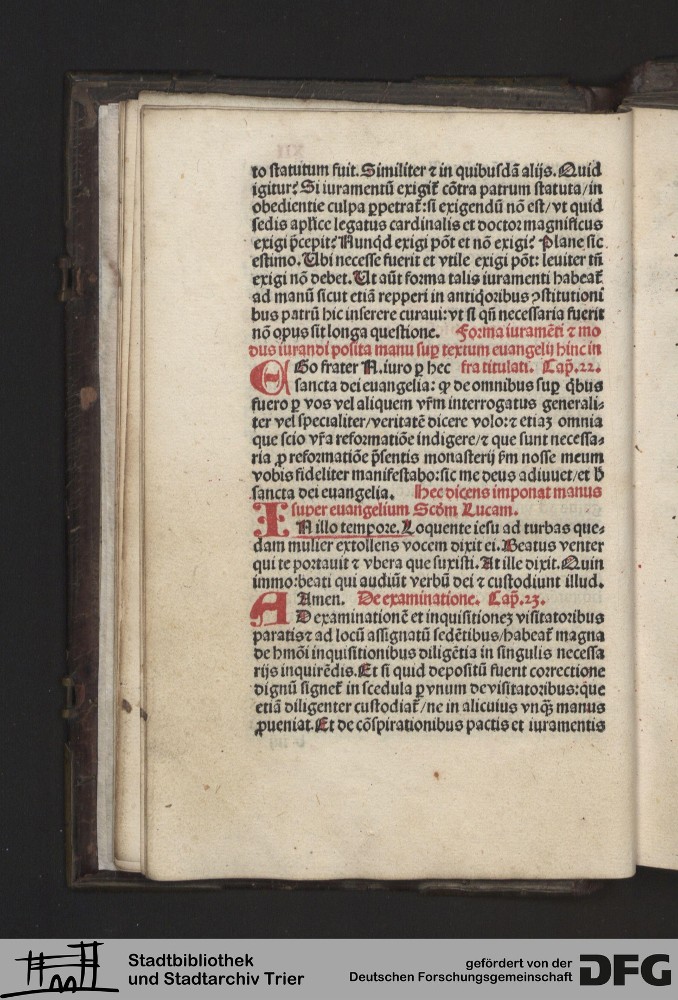 to statutum fuit. Similiter ⁊ in quibusdā alijs. Quid
igitur? Si iuramentū exigit᷑ cōtra patrum statuta/in
obedientie culpa ꝑpetrat᷑: si exigendū nō est/vt quid
sedis aplice legatus cardinalis et doctor magnificus
exigi p̄cepit? Nunq̇d exigi pōt et nō exigi? Plane sic
estimo. Ubi necesse fuerit et vtile exigi pōt: leuiter tn̄
exigi nō debet. Ut aūt forma talis iuramenti habeat᷑
ad manū sicut etiā repperi in antiq̇oribus ꝯstitutioni
bus patrū hic inserere curaui: vt si qn̄ necessaria fuerit
nō opus sit longa questione. Forma iuramēti ⁊ mo
dus iurandi posita manu suꝑ textum euangelij hinc in
EGo frater N. iuro ꝑ hec fra titulati. Cap̄. 22.
sancta dei euangelia: ꝙ de omnibus suꝑ q̇bus
fuero ꝑ vos vel aliquem vr̄m interrogatus generali-
ter vel specialiter/veritatē dicere volo: ⁊ etiaꝫ omnia
que scio vr̄a reformatiōe indigere/⁊ que sunt necessa-
ria ꝓ reformatiōe p̄sentis monasterij fm nosse meum
vobis fideliter manifestabo: sic me deus adiuuet/et h̄
sancta dei euangelia. Hec dicens imponat manus
super euangelium Scd̄m Lucam.
IN illo tempore. Loquente iesu ad turbas que-
dam mulier extollens vocem dixit ei. Beatus venter
qui te portauit ⁊ vbera que suxisti. At ille dixit. Quin
immo: beati qui audiūt verbū dei ⁊ custodiunt illud.
Amen. De examinatione. Cap̄. 23.
AD examinationē et inquisitioneꝫ visitatoribus
paratis ⁊ ad locū assignatū sedētibus/habeat᷑ magna
de hmōi inquisitionibus diligētia in singulis necessa
rijs inquirēdis. Et si quid depositū fuerit correctione
dignū signet᷑ in scedula ꝑ vnum de visitatoribus: que
etiā diligenter custodiat᷑/ne in alicuius vnq̄ꝫ manus
ꝓueniat. Et de cōspirationibus pactis et iuramentis
Stadtbibliothek
und Stadtarchiv Trier
gefördert von der
Deutschen Forschungsgemeinschaft
DFG